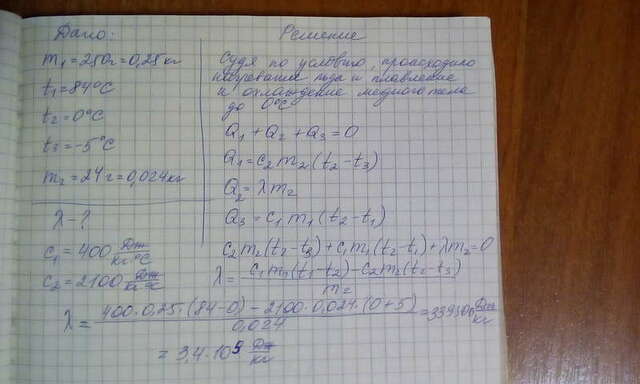 Дано:
m₁=250г=0,25кг
t₁=84°C
t₂=0°C
t₃=-5°C
m₂=24г=0,024кг
λ-?
c₁=400 Дж/кг°C
c₂=2100 Дж/кг°C
Решение
Судя по условию, происходило
нагревание льда и плавление
и охлаждение медного тела
до 0°C
Q₁+Q₂+Q₃=0
Q₁=c₂m₂(t₂-t₃)
Q₂=λm₂
Q₃=c₁m₁(t₂-t₁)
c₂m₂(t₂-t₃)+c₁m₁(t₂-t₁)+λm₂=0
λ=(c₁m₁(t₁-t₂)-c₂m₂(t₂-t₃))/m₂
λ=(400·0,25·(84-0)-2100·0,024·(0+5))/0,024=339500 Дж/кг
=3,4·10⁵ Дж/кг